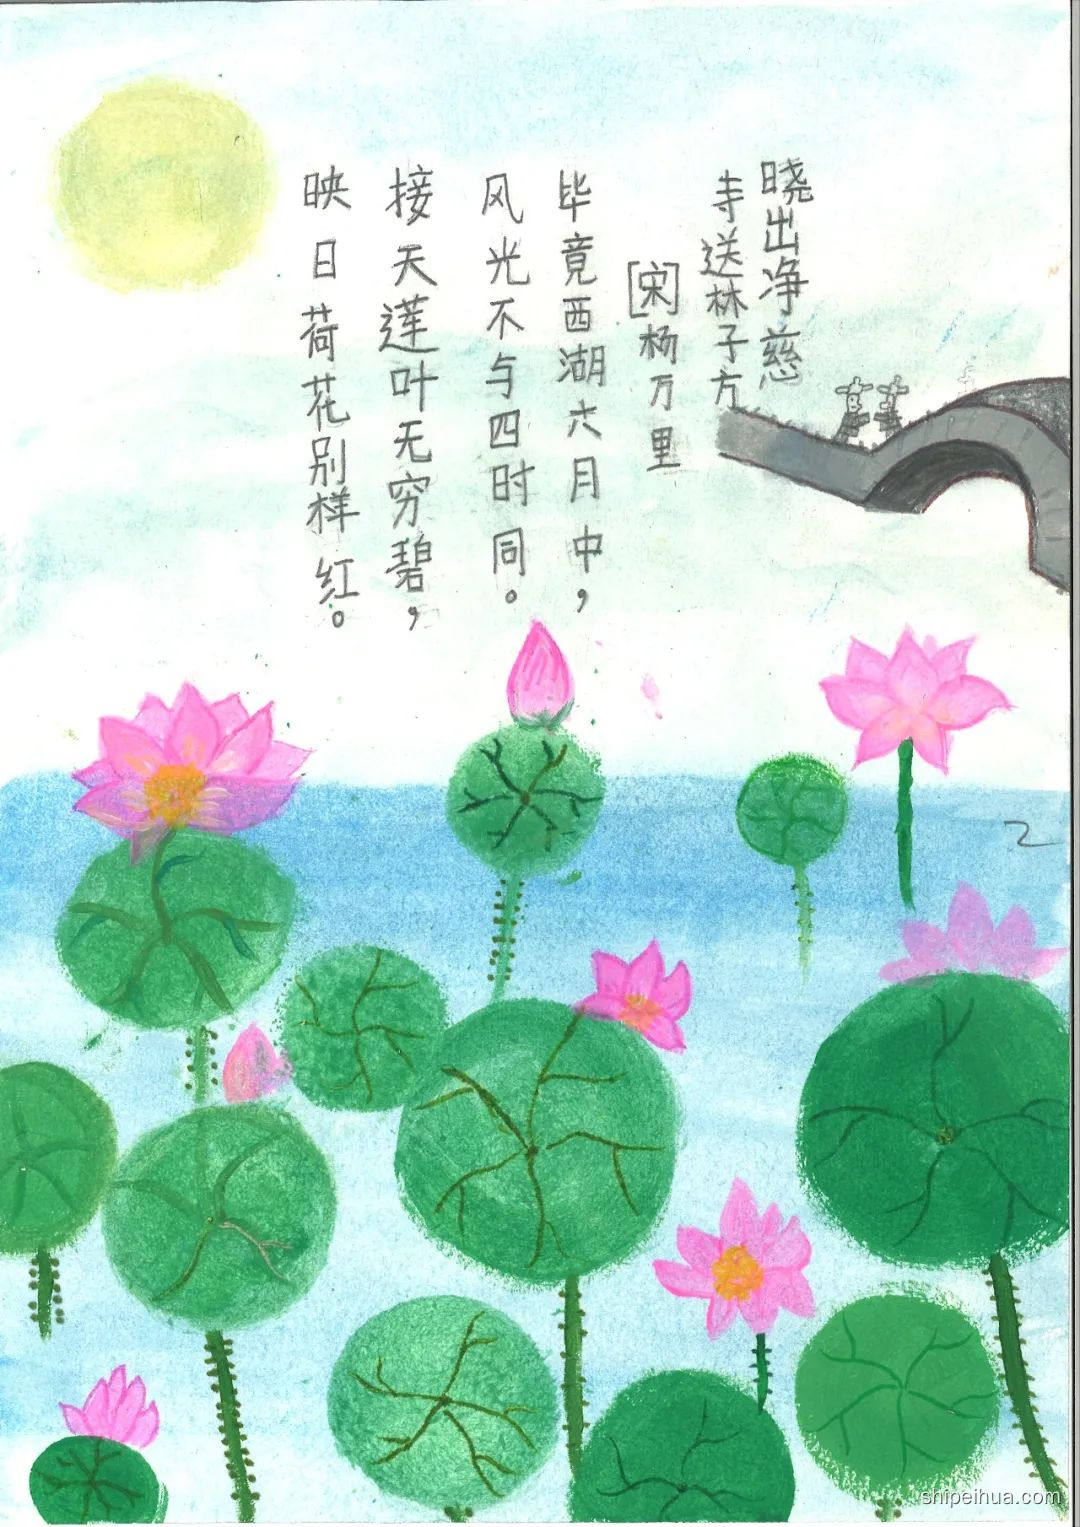 晓出净慈
寺送林子方
[宋]杨万里
毕竟西湖六月中，
风光不与四时同。
接天莲叶无穷碧，
映日荷花别样红。
shipeihua.com